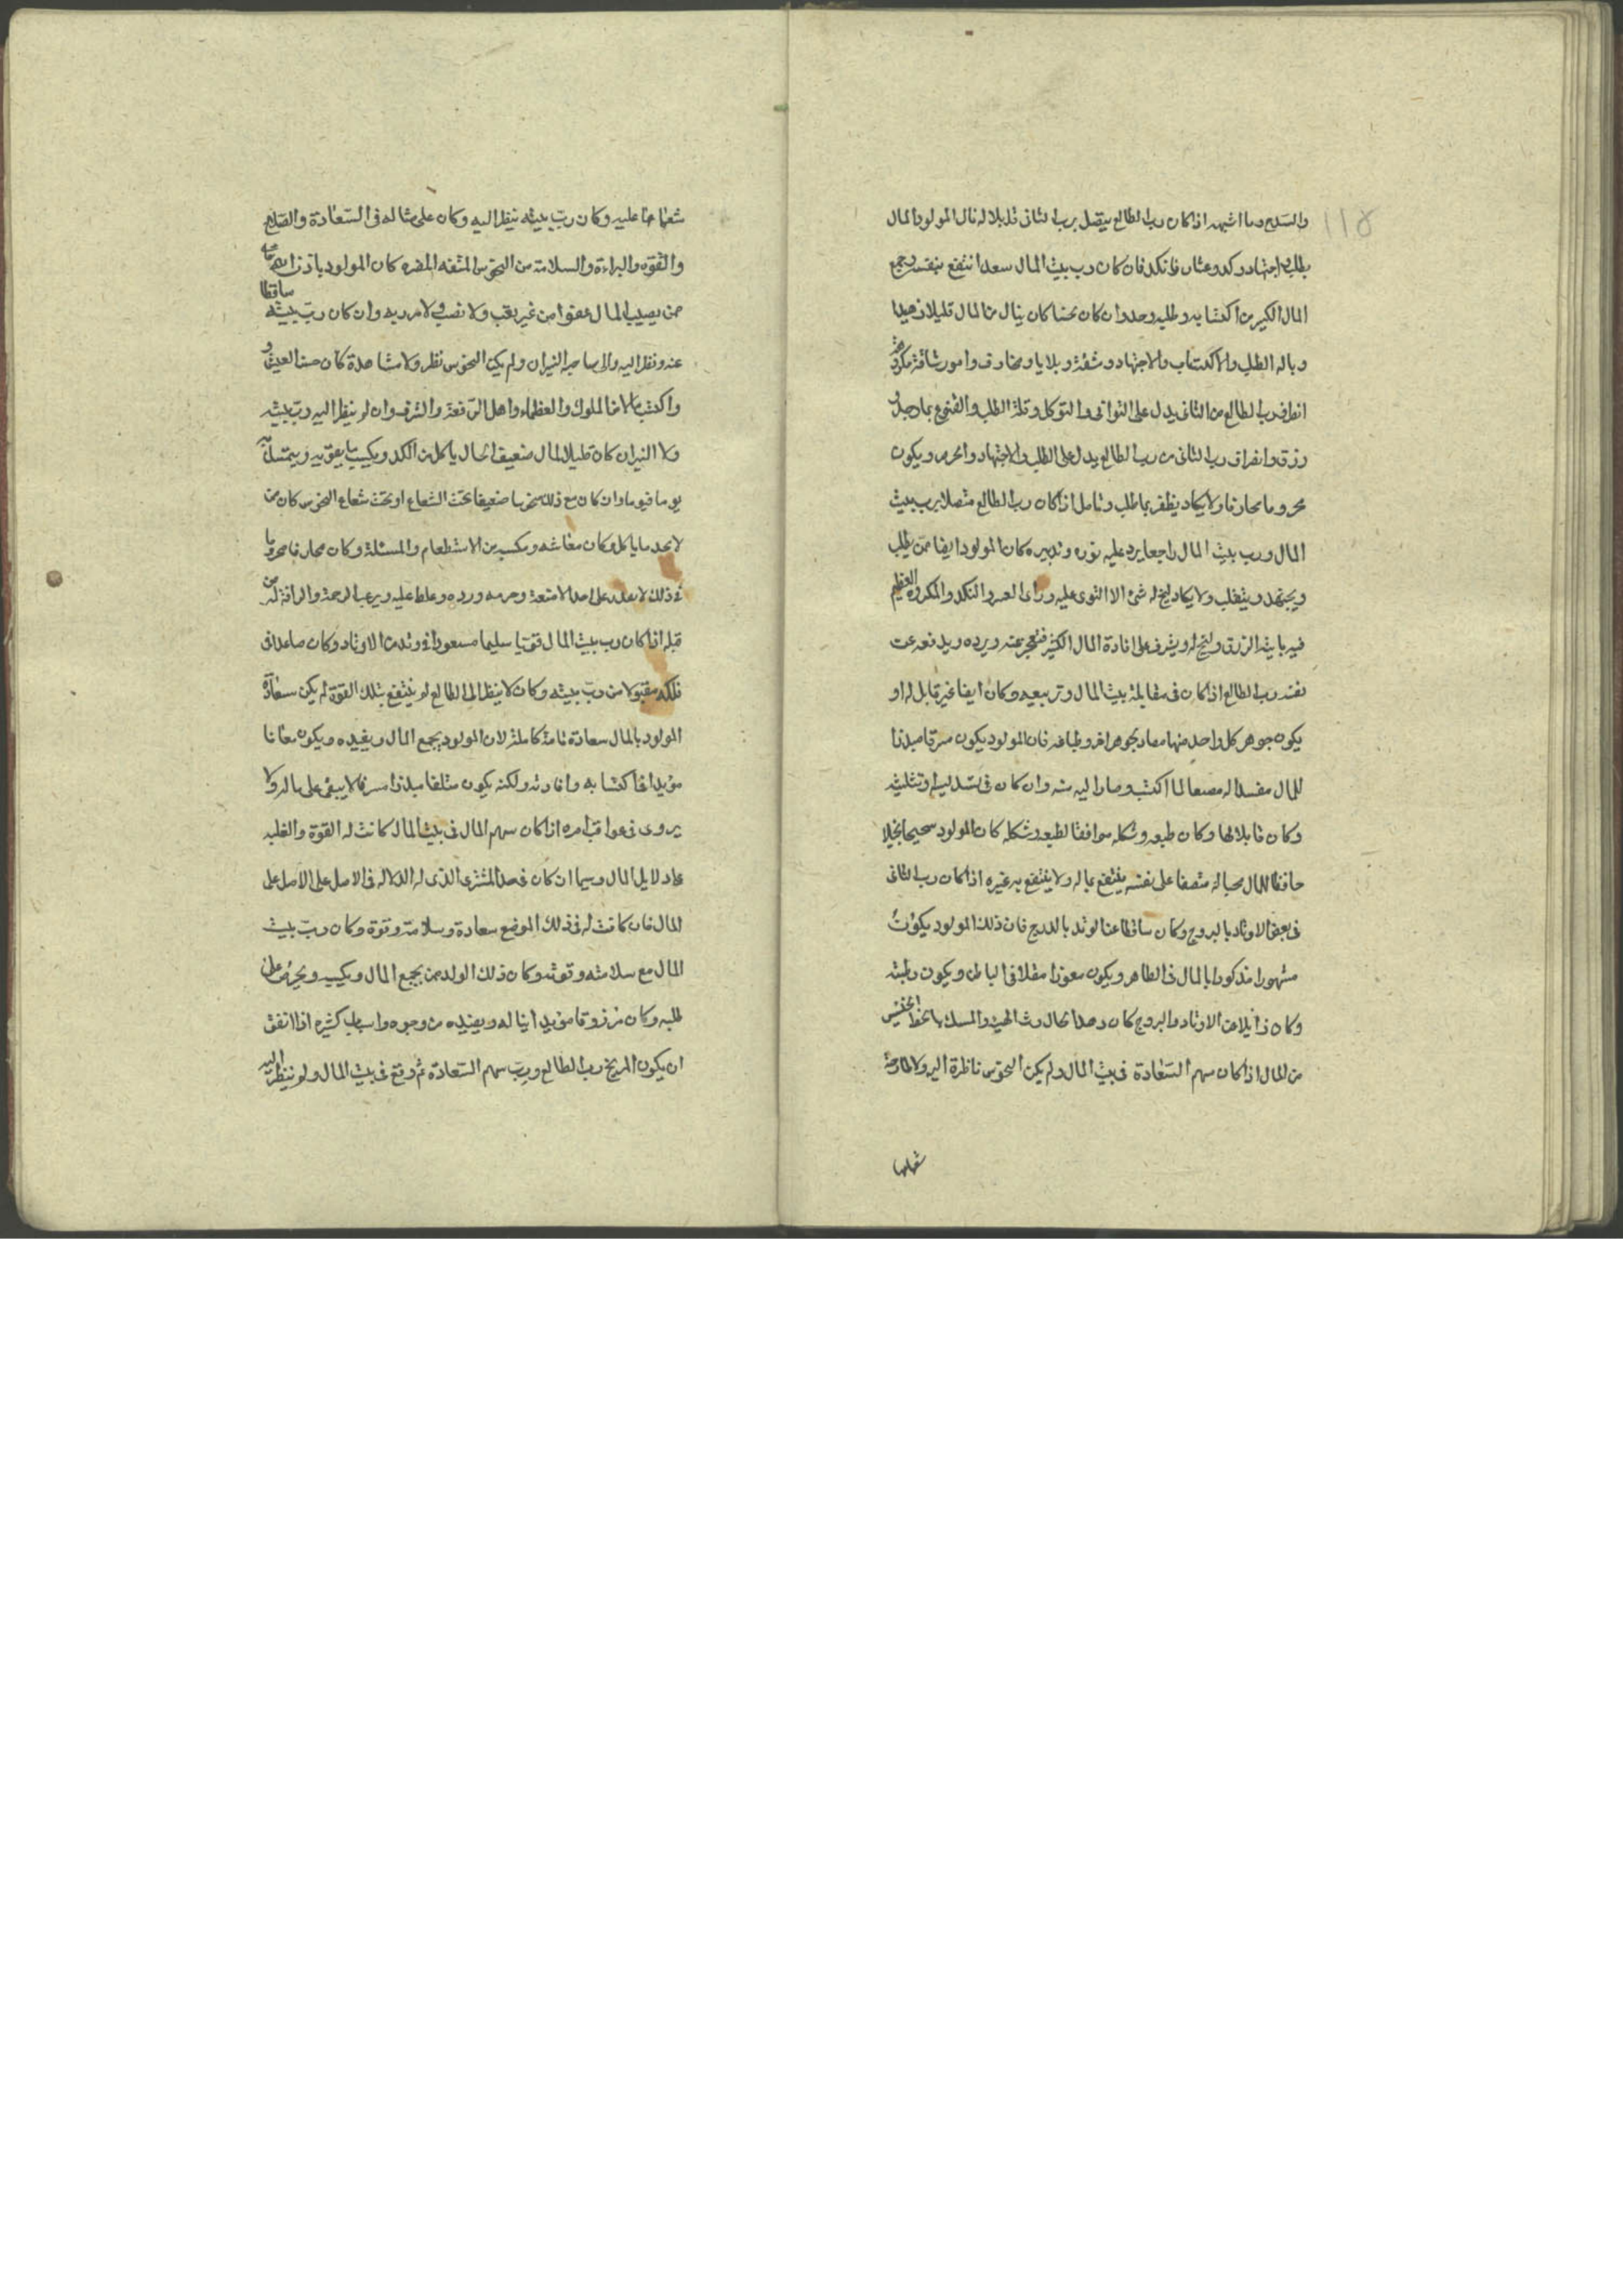 ١١٥
والسلاح وما اشبهه اذا كان رب الطالع يتصل برب الثانى نال المولود المال
بطلب واجتهاد وكد فان كان رب بيت المال سعدا انتفع بنفسه وجمع
المال الكثير من اكتسابه وطلبه وحده وان كان نحسا كان ينال من المال قليلا
وباله الطلب والاكتساب والاجتهاد ومشقة وبلايا ومخاوف وامور شاقة مكروهة
انصراف رب الطالع من الثانى يدل على التوانى والتوكل وقلة الطلب والقنوع بما
رزق وانصراف رب الثانى من رب الطالع يدل على الطلب والاجتهاد والحرص ويكون
محروما محارفا ولا يكاد يظفر بما طلب وتامل اذا كان رب الطالع متصلا برب بيت
المال ورب بيت المال راجعا يرد عليه نوره وتدبيره كان المولود ايضا ممن يطلب
ويجتهد ويتقلب ولا يكاد له شئ الا التوى عليه وراى العسر والنكد والمكروه العظيم
فيه الرزق ويشرف على افادة المال الكثير ويرده ويدفعه عن
نفسه رب الطالع اذا كان فى مقابلة بيت المال وتربيعه وكان ايضا غير قابل له او
يكون جوهر كل واحد منهما مضاد لجوهر الاخر فان المولود يكون مسرفا مبذرا
للمال مفسدا له مضيعا لما اكتسب وصار اليه منه وان كان فى تسديسه او تثليثه
وكان قابلا لها وكان طبعه وشكله موافقا لطبعه وشكله كان المولود شحيحا بخيلا
حافظا للمال محبا له على نفسه ينتفع بماله ولا ينتفع به غيره اذا كان رب الثانى
فى بعض الاوتاد بالبروج وكان ساقطا عن الوتد بالدرج فان ذلك المولود يكون
مشهورا مذكورا بالمال فى الظاهر ويكون معوزا مقلا فى الباطن ويكون
وكان زايلا عن الاوتاد والبروج كان رث الهيئة بالحظ الخسيس
من المال اذا كان سهم السعادة فى بيت المال ولم يكن النحوس ناظرة اليه ولا طارحة
شعاعها
شعاعها عليه وكان رب بيته ينظر اليه وكان على مثاله فى السعادة والصلاح
والقوة والبراءة والسلامة من النحوس المضره كان المولود باذن الله
ممن يصيب المال عفوا من غير تعب ولا نصب وان كان رب بيته ساقطا
عنه ونظر اليه النيران ولم يكن للنحوس نظر ولا مشاهدة كان حسن العيش
واكتسب مالا من الملوك والعظماء واهل الرفعة والشرف وان لم ينظر اليه رب بيته
ولا النيران كان قليل المال ضعيف الحال ياكل من الكد ويكسب ما يقوته
يوما فيوما وان كان مع ذلك منحوسا ضعيفا تحت الشعاع او تحت شعاع النحوس كان من
لا يجد ما ياكل وكان معاشه ومكسبه من الاستطعام والمسئلة وكان محارفا محروما
قبله اذا كان رب بيت المال قويا سليما مسعودا فى وتد من الاوتاد وكان صاعدا فى
فلكه مقبولا من رب بيته وكان لا ينظر الى الطالع لم ينتفع بتلك القوة ولم يكن سعادة
المولود بالمال سعادة تامة كاملة لان المولود يجمع المال ويفيده ويكون معانا
مؤيدا فى اكتسابه وافادته ولكنه يكون متلفا مبذرا مسرفا لا يبقى على ماله ولا
يروى فى عواقب امره اذا كان سهم المال فى بيت المال كانت له القوة والغلبه
على دلايل المال وسيما ان كان فى المشترى الذى له الدلاله فى الاصل على
المال فان كانت له فى ذلك الموضع سعادة وسلامة وقوة وكان رب بيت
المال مع سلامته وقوته وكان ذلك الولد ممن يجمع المال ويكسبه ويحرص على
طلبه وكان مرزوقا مؤيدا يناله ويفيده من وجوه واسباب كثيره اذا اتفق
ان يكون المريخ رب الطالع ورب سهم السعادة ثم وقع فى بيت المال ولم ينظر اليه